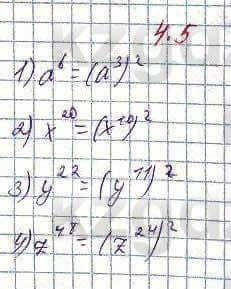 4.5
1) a⁶ = (a³)²
2) x²⁰ = (x¹⁰)²
3) y²² = (y¹¹)²
4) z⁴⁸ = (z²⁴)²